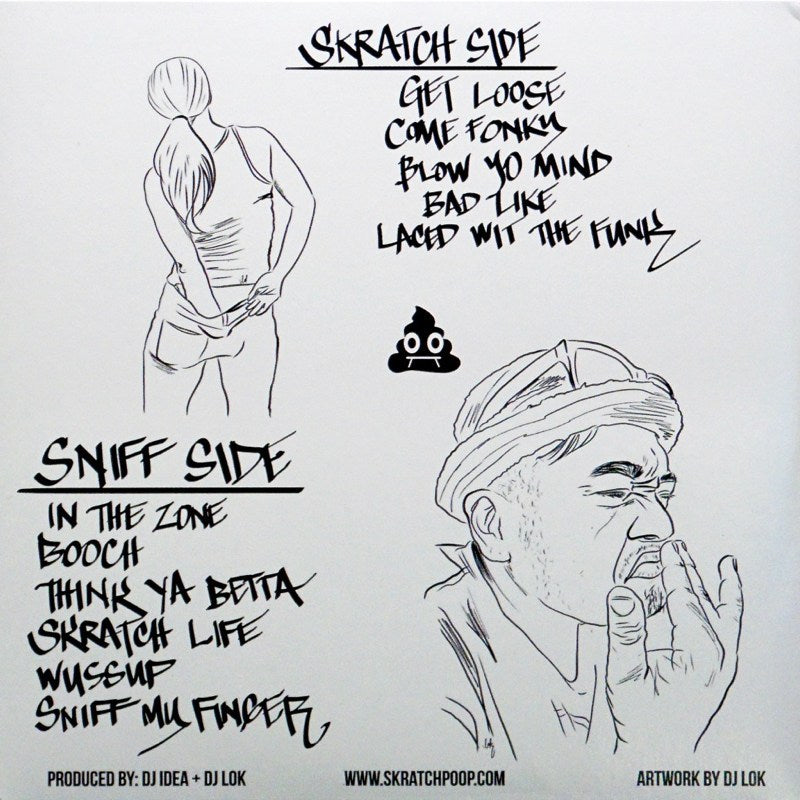 SKRATCH SIDE
GET LOOSE
COME FONKY
BLOW YO MIND
BAD LIKE
LACED WIT THE FUNK
SNIFF SIDE
IN THE ZONE
BOOCH
THINK YA BETTA
SKRATCH LIFE
WUSSUP
SNIFF MY FINGER
PRODUCED BY: DJ IDEA + DJ LOK
WWW.SKRATCHPOOP.COM
ARTWORK BY DJ LOK